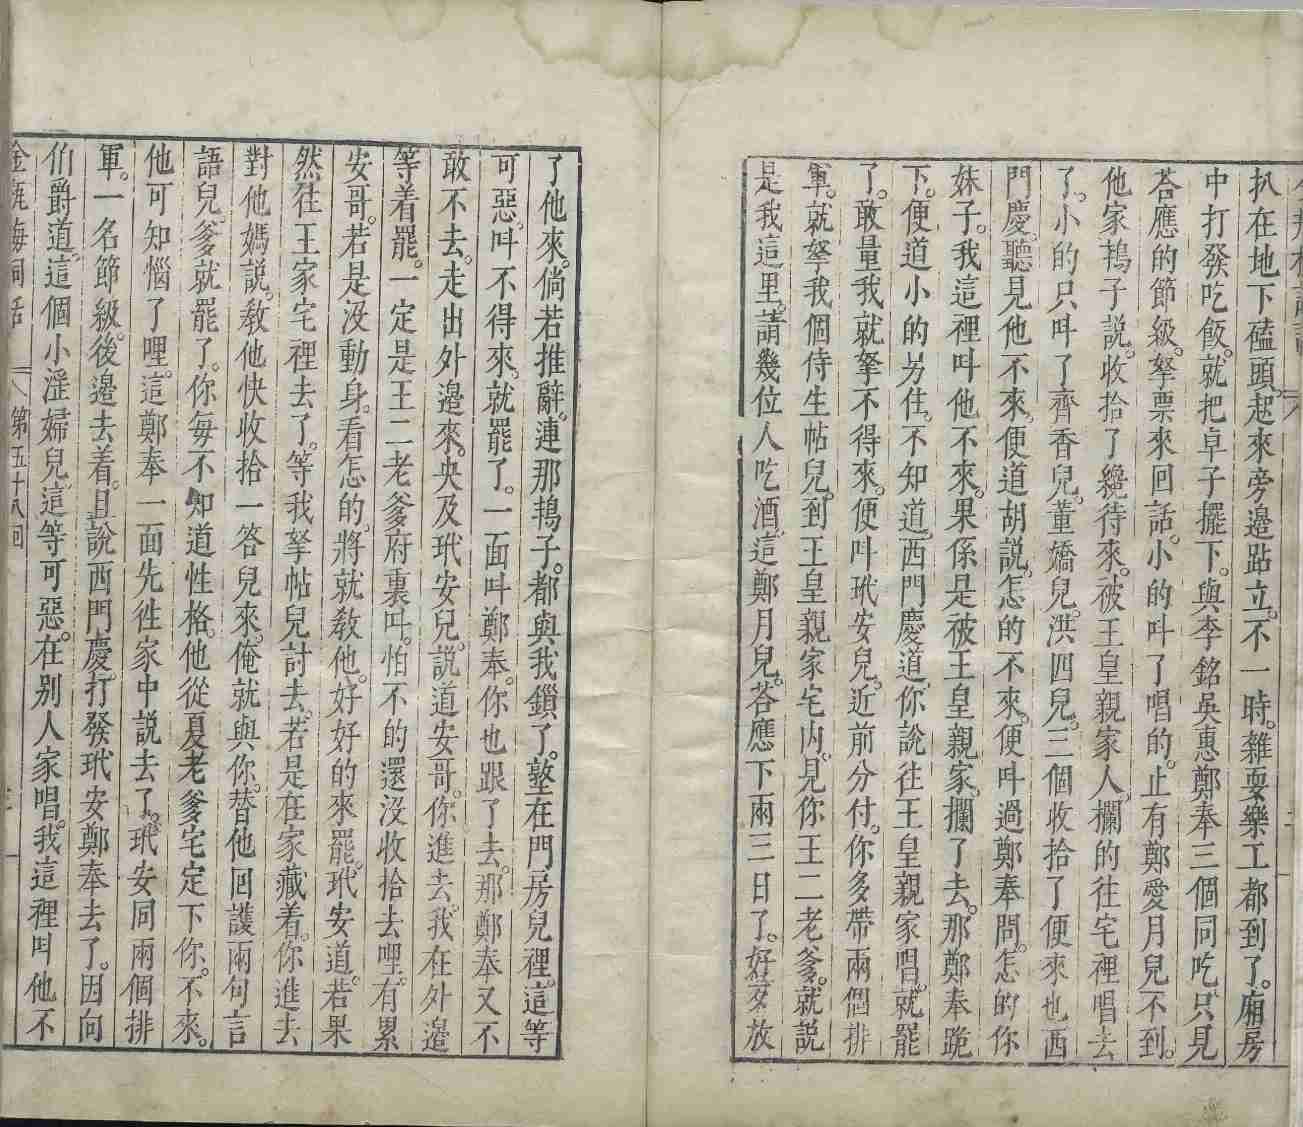 扒在地下磕頭。起來旁邉跕立。不一時。雜耍樂工都到了。廂房
中打發吃飯。就把卓子擺下。與李銘吳惠鄭奉三個同吃。只見
荅應的節級。拏票來回話。小的呌了唱的。止有鄭愛月兒不到。
他家鴇子說。收拾了纔待來。被王皇親家人。欄的往宅裡唱去
了。小的只呌了齊香兒。董嬌兒。洪四兒。三個收拾了便來也西
門慶。聽見他不來。便道胡説。怎的不來。便呌過鄭奉問。怎的你
妹子。我這裡呌他不來。果係是被王皇親家。攔了去。那鄭奉跪
下。便道小的另住。不知道。西門慶道你說往王皇親家唱。就罷
了。敢量我就拏不得來。便呌玳安兒。近前分付。你多帶兩個排
軍。就拏我個侍生帖兒。到王皇親家宅内。見你王二老爹。就説
是我這里。請幾位人吃酒。這鄭月兒。荅應下兩三日了。好歹放
了他來。倘若推辭。連那鴇子。都與我鎖了。墪在門房兒裡。這等
可惡。呌不得來。就罷了。一面呌鄭奉。你也跟了去。那鄭奉又不
敢不去。走出外邉來。央及玳安兒。説道安哥。你進去。我在外邉
等着罷。一定是王二老爹府裏呌。怕不的還沒收拾去哩。有累
安哥。若是沒動身。看怎的。將就教他。好好的來罷。玳安道。若果
然往王家宅裡去了。等我拏帖兒討去。若是在家藏着。你進去
對他媽説。教他快收拾一答兒來。俺就與你。替他回護兩句言
語兒。爹就罷了。你每不知道性格。他從夏老爹宅定下你。不來。
他可知惱了哩。這鄭奉一面先徃家中説去了。玳安同兩個排
軍。一名節級。後邉去着。且説西門慶。打發玳安鄭奉去了。因向
伯爵道。這個小淫婦兒。這等可惡。在别人家唱。我這裡呌他不
金瓶梅詞話 第五十八回